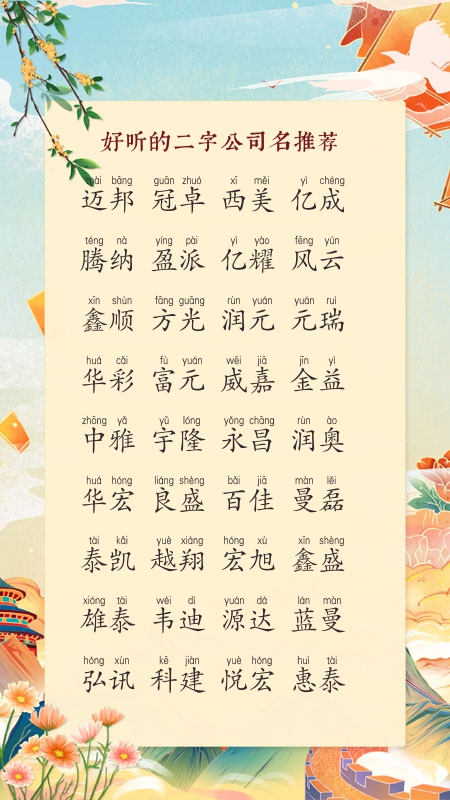 好听的二字公司名推荐
mài bāng guān zhuó xī měi yì chéng
迈邦 冠卓 西美 亿成
téng nà yíng pài yì yào fēng yún
腾纳 盈派 亿耀 风云
xīn shùn fāng guāng rùn yuán yuán ruì
鑫顺 方光 润元 元瑞
huá cǎi fù yuán wēi jiā jīn yì
华彩 富元 威嘉 金益
zhōng yǎ yǔ lóng yǒng chāng rùn ào
中雅 宇隆 永昌 润奥
huá hóng liáng shèng bǎi jiā màn lěi
华宏 良盛 百佳 曼磊
tài kǎi yuè xiáng hóng xù xīn shèng
泰凯 越翔 宏旭 鑫盛
xióng tài wéi dí yuán dá lán màn
雄泰 韦迪 源达 蓝曼
hóng xùn kē jiàn yuè hóng huì tài
弘讯 科建 悦宏 惠泰